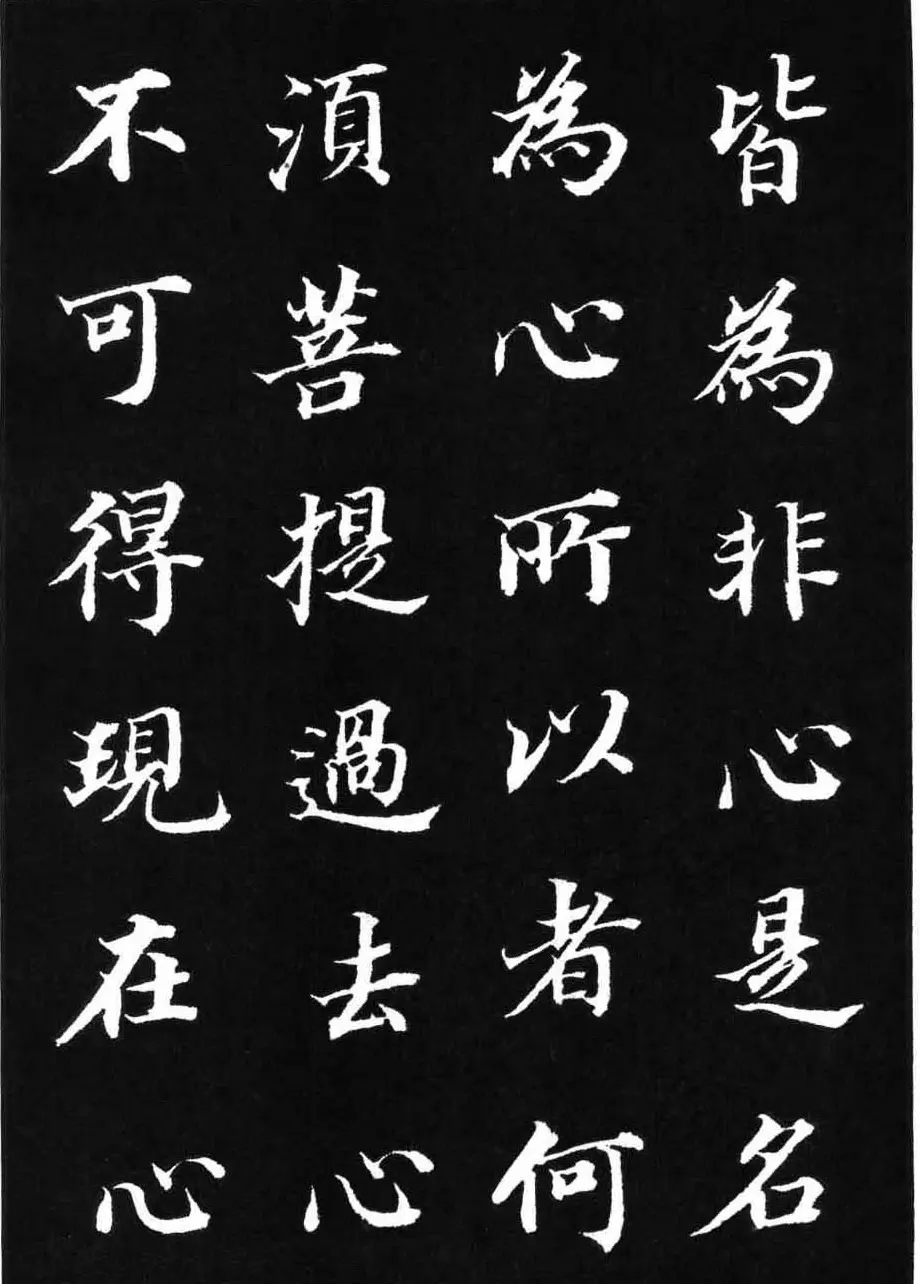 皆為非心是名
為心所以者何
湏菩提過去心
不可得現在心